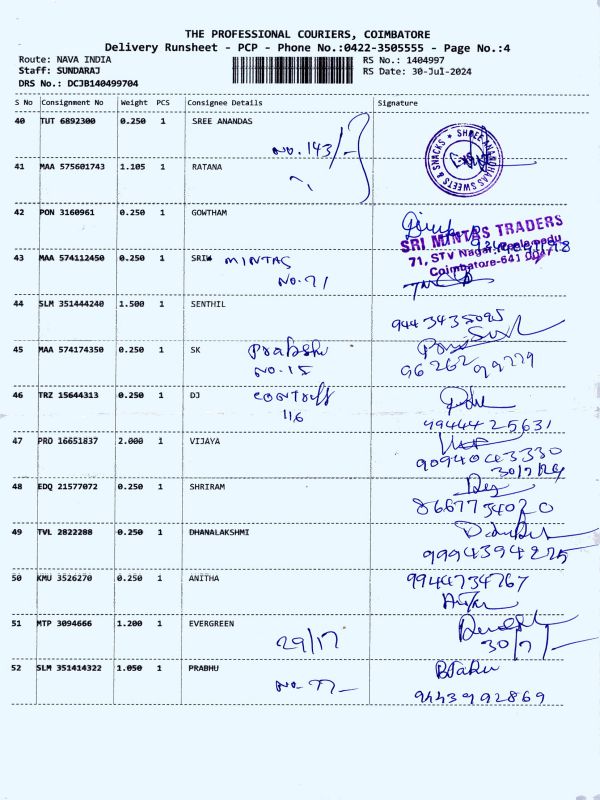 THE PROFESSIONAL COURIERS, COIMBATORE
Delivery Runsheet - PCP - Phone No.:0422-3505555 - Page No.:4
Route: NAVA INDIA
Staff: SUNDARAJ
DRS No.: DCJB140499704
RS No.: 1404997
RS Date: 30-Jul-2024
S No Consignment No Weight PCS Consignee Details Signature
40 TUT 6892300 0.250 1 SREE ANANDAS
No. 143/-
SHREE ANANDHAAS SWEETS & SNACKS
41 MAA 575601743 1.105 1 RATANA
42 PON 3160961 0.250 1 GOWTHAM
SRI MINTAS TRADERS
71, STV Nagar, Peelamedu
Coimbatore-641 004
43 MAA 574112450 0.250 1 SRIW MINTAS
No. 71
44 SLM 351444240 1.500 1 SENTHIL
944 3435095
45 MAA 574174350 0.250 1 SK Prabhu
No. 15
96262 99279
46 TRZ 15644313 0.250 1 DJ
116
99444 25631
47 PRO 16651837 2.000 1 VIJAYA
9094043330
30/7/24
48 EDQ 21577072 0.250 1 SHRIRAM
49 TVL 2822288 0.250 1 DHANALAKSHMI
9994394275
50 KMU 3526270 0.250 1 ANITHA
9944734767
51 MTP 3094666 1.200 1 EVERGREEN
29/17
30/7
52 SLM 351414322 1.050 1 PRABHU
No. 77-
9443992869